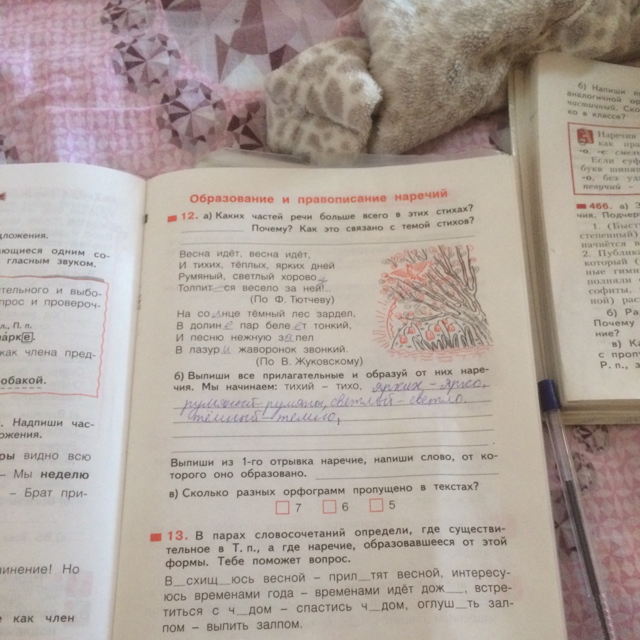 дложения.
ающиеся одним со-
гласным звуком.
ительного и выбо-
прос и провероч-
л., П. п.
парке.
как члена пред-
обакой.
. Надпиши час-
ожения.
ры видно всю
– Мы неделю
– Брат при-
инение! Но
е как член
Образование и правописание наречий
12. а) Каких частей речи больше всего в этих стихах?
Почему? Как это связано с темой стихов?
Весна идёт, весна идёт,
И тихих, тёплых, ярких дней
Румяный, светлый хоровод
Толпится весело за ней!
(По Ф. Тютчеву)
На солнце тёмный лес зардел,
В долине пар белеет тонкий,
И песню нежную запел
В лазури жаворонок звонкий.
(По В. Жуковскому)
б) Выпиши все прилагательные и образуй от них наре-
чия. Мы начинаем: тихий – тихо, ярких – ярко,
румяный – румяны, светлый – светло.
тёмный – темно,
Выпиши из 1-го отрывка наречие, напиши слово, от ко-
торого оно образовано.
в) Сколько разных орфограмм пропущено в текстах?
7 6 5
13. В парах словосочетаний определи, где существи-
тельное в Т. п., а где наречие, образовавшееся от этой
формы. Тебе поможет вопрос.
В__схищ__юсь весной – прил__тят весной, интересу-
юсь временами года – временами идёт дож__, встре-
титься с ч__дом – спастись ч__дом, оглуш__ть зал-
пом – выпить залпом.
б) Напиши
аналогичной
частичный. Ск
ко в классе?
Наречия
как пра
-о, -е: смел
Если суф
букв шипящ
-о, без уд
певучий –
466. а) З
чия. Подчер
1. (Быст
степенный)
начнётся
2. Публика
который с
ные гимн
подняли
софиты,
ной) рас
б) Ра
Почему
ние?
в) Ка
с проп
Р. п.,